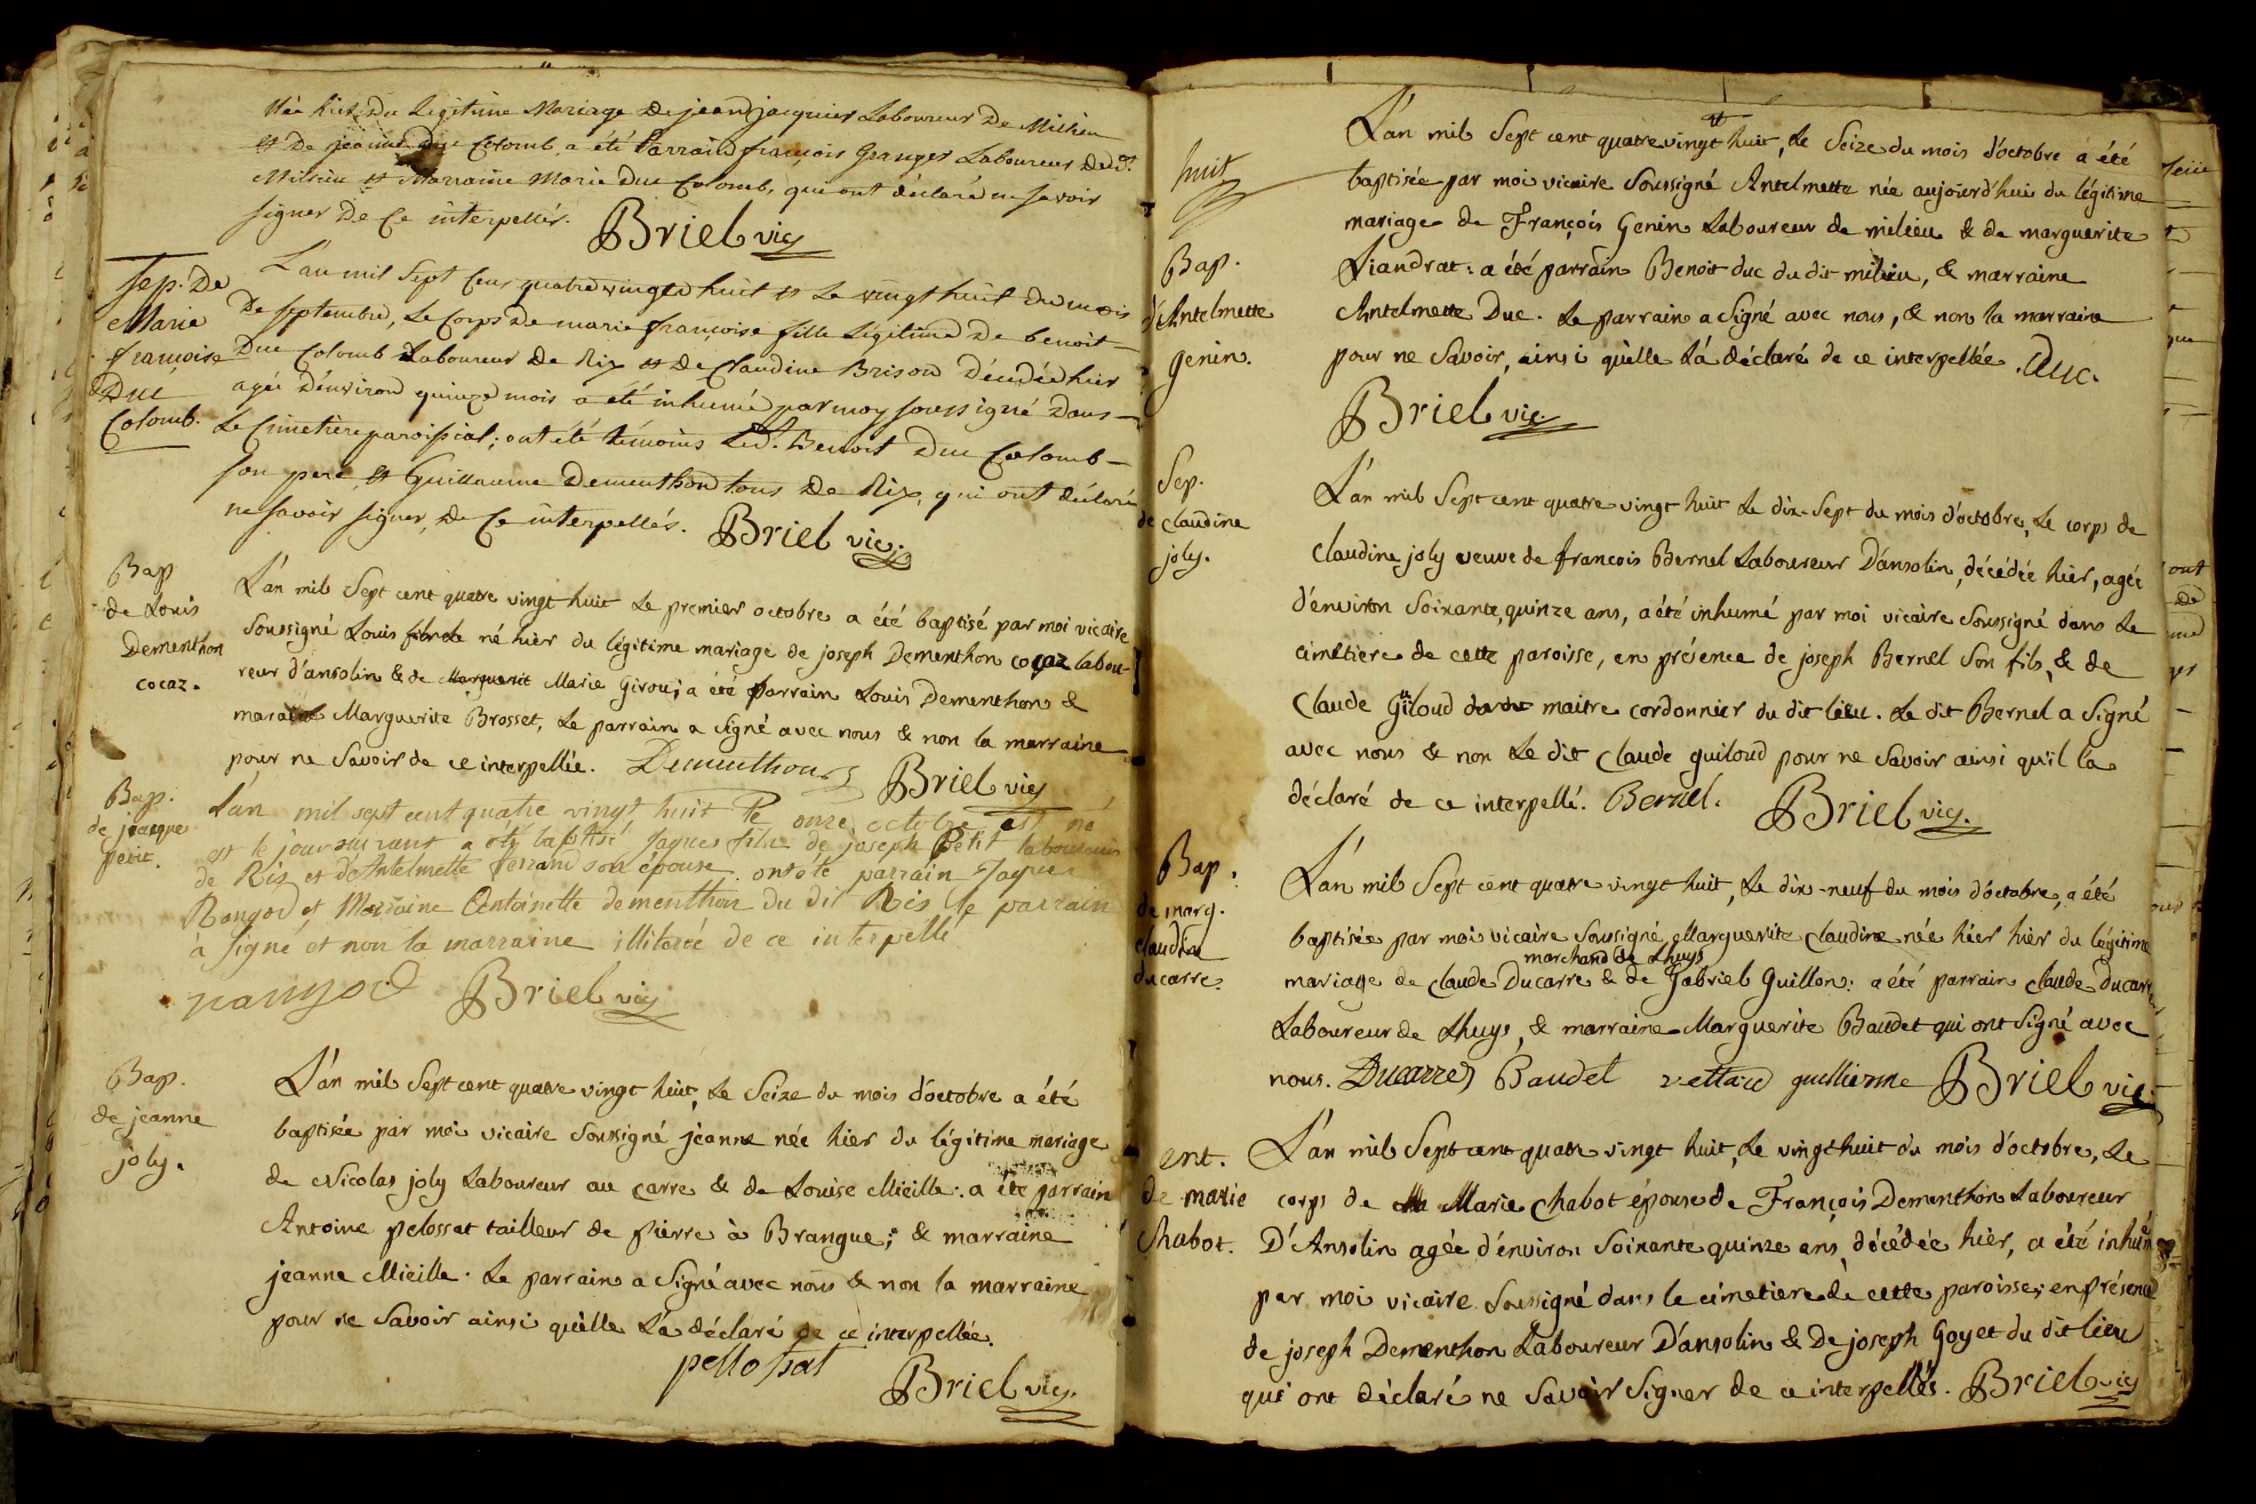 Née hier, du Legitime Mariage De jean jacquier Laboureur De Milieu
et De jeanne Duc Colomb, a été Parrain françois Granger Laboureur dud.
Milieu et Marraine Marie Duc Colomb, qui ont déclaré ne savoir
signer De Ce interpellés. Briel vic.
Sep. De
Marie
françoise
Duc
Colomb.
L'an mil Sept Cens quatre vingt huit et Le vingt huit du mois
De septembre, Le Corps De marie françoise fille Légitime De benoit
Duc Colomb Laboureur De Rix et De Claudine Brison Décédée hier
agée D'environ quinze mois a été inhumé par moy soussigné Dans
Le Cimetière paroissial; ont été témoins Led. Benoit Duc Colomb
son pere et Guillaume Dementhon tous De Rix, qui ont déclaré
ne savoir signer, De Ce interpellés. Briel vic.
Bap
de Louis
Dementhon
cocaz.
L'an mil Sept cent quatre vingt huit Le premier octobre a été baptisé par moi vicaire
Soussigné Louis né hier du légitime mariage de joseph Dementhon cocaz labou-
reur d'ansolin & de Marguerit Marie Girou; a été parrain Louis Dementhon &
maraine Marguerite Brosset, Le parrain a signé avec nous & non la marraine
pour ne Savoir de ce interpellée. Dementhon Briel vic
Bap.
de jacque
petit.
L'an mil sept cent quatre vingt huit Le onze octobre est né
et le jour suivant a été baptisé Jaques fils de joseph Petit laboureur
de Rix et d'Antelmette ferrand son épouse. ont été parrain Jaques
Rangod et Marraine Antoinette dementhon du dit Ris le parrain
à signé et non la marraine illiterée de ce interpellé
rangod Briel vic
Bap.
de jeanne
joly.
L'an mil Sept cent quatre vingt huit, Le Seize du mois d'octobre a été
baptisée par moi vicaire Soussigné jeanne née hier du légitime mariage
de Nicolas joly Laboureur au carre & de Louise Mieille: a été parrain
Antoine pelossat tailleur de pierre à Brangue; & marraine
jeanne Mieille. Le parrain a Signé avec nous & non la marraine
pour ne Savoir ainsi qu'elle L'a déclaré de ce interpellée.
pellossat
Briel vic.
huit
Bap.
d'Antelmette
genin.
L'an mil Sept cent quatre vingt huit, Le Seize du mois d'octobre a été
baptisée par moi vicaire Soussigné Antelmette née aujourd'hui du légitime
mariage de François Genin Laboureur de milieu & de marguerite
Liandrat: a été parrain Benoit duc du dit milieu, & marraine
Antelmette Duc. Le parrain a Signé avec nous, & non la marraine
pour ne Savoir, ainsi qu'elle L'a déclaré de ce interpellée. Duc.
Briel vic.
Sep.
de claudine
joly.
L'an mil Sept cent quatre vingt huit Le dix-Sept du mois d'octobre, Le corps de
Claudine joly veuve de françois Bernel Laboureur D'ansolin, décédée hier, agée
d'environ Soixante, quinze ans, a été inhumé par moi vicaire Soussigné dans Le
cimetiere de cette paroisse, en présence de joseph Bernel Son fils, & de
Claude Guiloud maitre cordonnier du dit lieu. Le dit Bernel a Signé
avec nous & non Le dit Claude guiloud pour ne Savoir ainsi qu'il l'a
déclaré de ce interpellé. Bernel. Briel vic.
Bap.
de marg.
claudine
ducarre.
L'an mil Sept cent quatre vingt huit, Le dix-neuf du mois d'octobre, a été
baptisée par moi vicaire Soussigné Marguerite Claudine née hier hier du légitime
marchand de Lhuys
mariage de Claude Ducarre & de Gabriel Guillon: a été parrain Claude Ducarre
Laboureur de Lhuys, & marraine Marguerite Baudet qui ont Signé avec
nous. Ducarre Baudet vettard guillienne Briel vic.
ent.
de marie
Chabot.
L'an mil Sept cent quatre vingt huit, Le vingt huit du mois d'octobre, Le
corps de Ma Marie Chabot épouse de François Dementhon Laboureur
D'Ansolin agée d'environ Soixante quinze ans, décédée hier, a été inhumé
par moi vicaire Soussigné dans le cimetiere de cette paroisse; en présence
de joseph Dementhon Laboureur D'ansolin & De joseph Goyet du dit lieu
qui ont déclaré ne Savoir Signer de ce interpellés. Briel vic